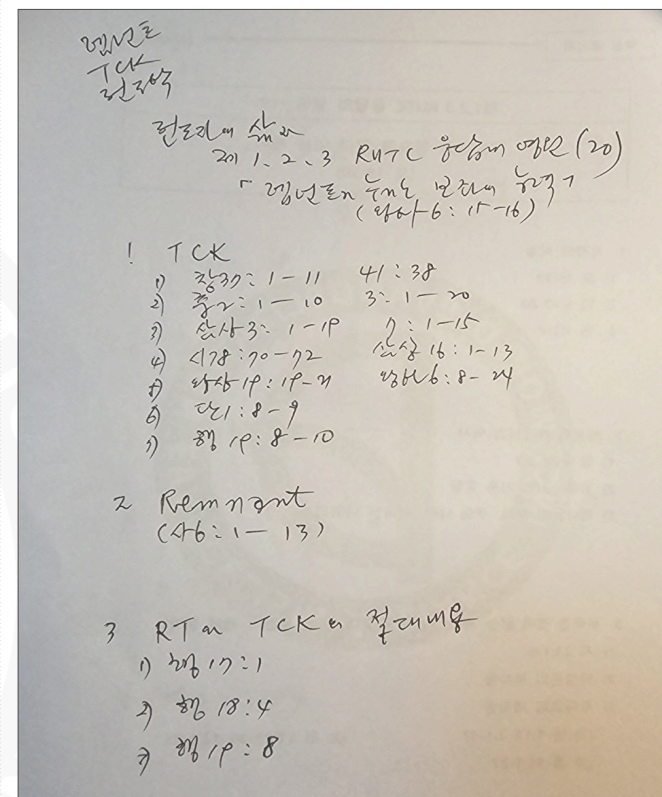 렘넌트
TCK
전도학
전도자의 삶과
제 1, 2, 3 RUTC 응답의 영원 (20)
「렘넌트가 누리는 보좌의 능력」
(왕하 6 : 15 - 16)
! TCK
1) 창37 : 1 - 11 41 : 38
2) 출2 : 1 - 10 3 : 1 - 20
3) 삼상3 : 1 - 19 7 : 1 - 15
4) 시78 : 70 - 72 삼상 16 : 1 - 13
5) 왕상19 : 19 - 21 왕하6 : 8 - 24
6) 단1 : 8 - 9
7) 행 19 : 8 - 10
2 Remnant
(사6 : 1 - 13)
3 RT와 TCK의 절대내용
1) 행 17 : 1
2) 행 18 : 4
3) 행 19 : 8